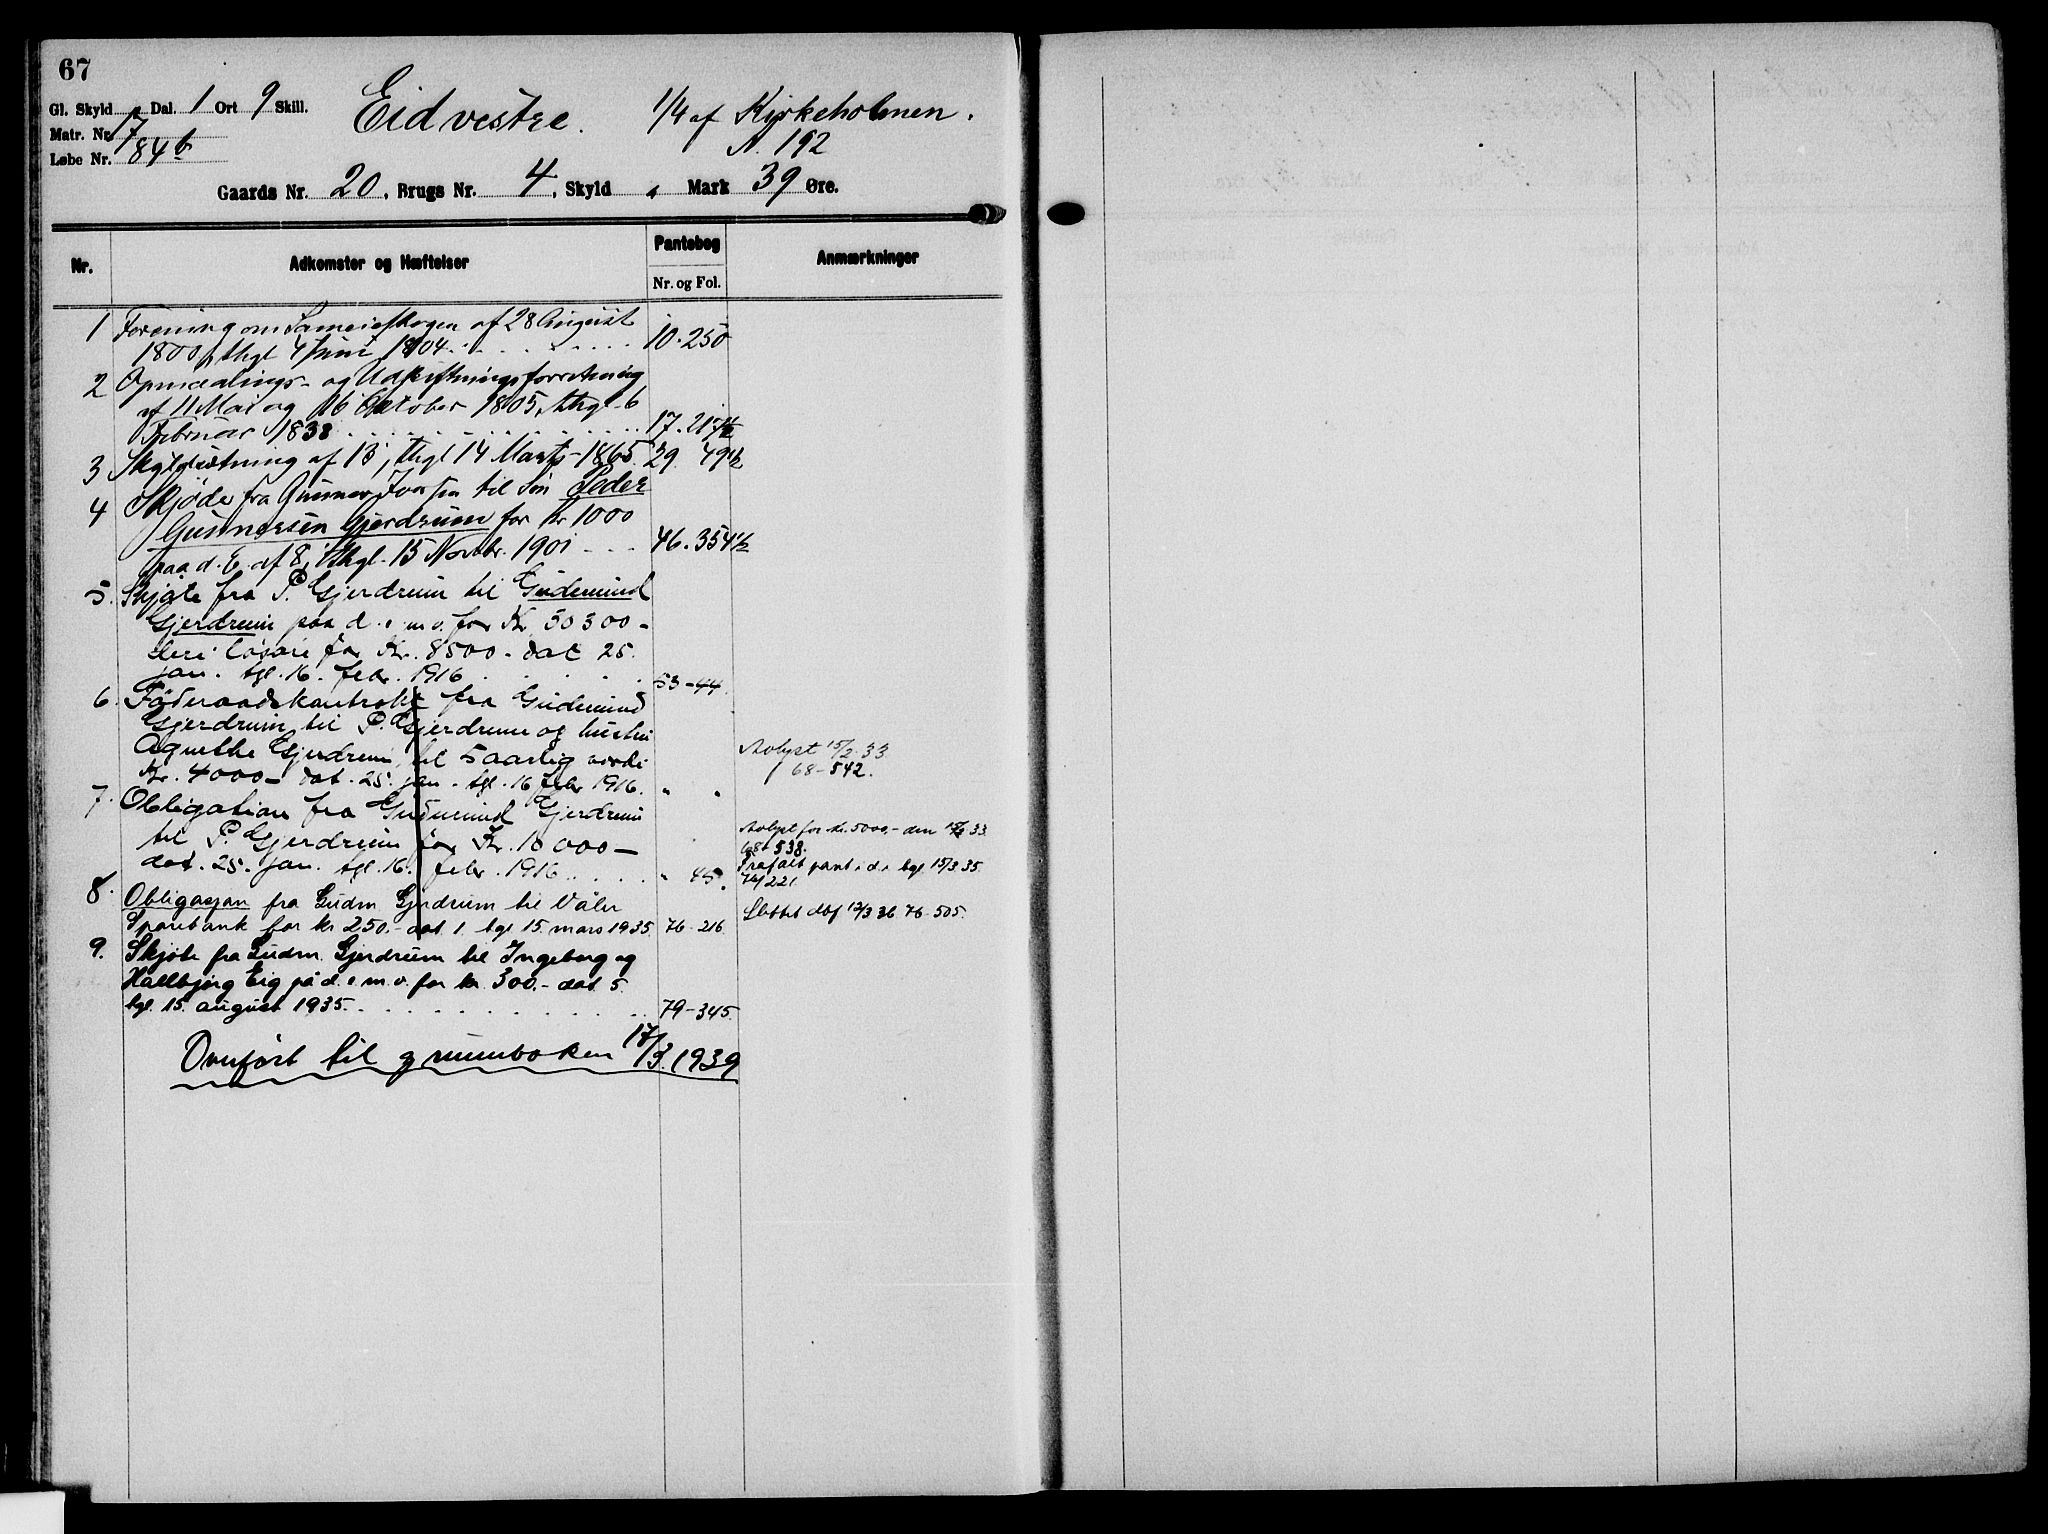 67
Gl. Skyld " Dal. 1 Ort 9 Skill.
Matr. Nr. 17
Løbe Nr. 84b
Eid vestre. 1/4 af Kirkeholmen.
N. 192
Gaards Nr. 20, Brugs Nr. 4, Skyld " Mark 39 Øre.
Nr. Adkomster og Hæftelser Pantebog Anmærkninger
Nr. og Fol.
1 Forening om Sameieskogen af 28 August
1800, thgl 4 Juni 1804 10.250
2 Opmaalings- og Udskiftningsforretning
af 11 Mai og 16 Oktober 1805, thgl. 6
Februar 1838 17.217b
3 Skyldutstning af 13, thgl 14 Marts 1865. 29. 49b
4 Skjøde fra Gunner Iversen til Søn Peder
Gunnersen Gjerdrum for Kr 1000
paa d. E. af 8, thgl. 15 Novbr. 1901 46.354b
5. Skjøte fra P. Gjerdrum til Gudmund
Gjerdrum paa d. e. m. v. for Kr. 30300-
deri løsøre for Kr. 8500- dat 25.
jan. tgl. 16. febr. 1916 53-44.
6. Føderaadskontrakt fra Gudmund
Gjerdrum til P. Gjerdrum og hustru
Agnethe Gjerdrum, til 5aarlig værdi
Kr. 4000- dat. 25. jan. tgl. 16 febr 1916. " "
Avlyst 15/2 33
68-542.
7. Obligation fra Gudmund Gjerdrum
til P. Gjerdrum for Kr. 10000-
dat. 25. jan. tgl. 16. febr. 1916 " 45.
Avlyst for kr. 5000,- den 33.
68-538.
Frafalt pant i d. e. tgl. 15/3 35.
76/221.
8. Obligasjon fra Gudm. Gjerdrum til Våler
Sparebank for kr 250.- dat 1. tgl. 15. mars 1935. 76-216.
Slettet 12/3 36 76-505.
9. Skjøte fra Gudm. Gjerdrum til Ingeborg og
Hallbjørg Eig på d. e. m. v. for kr. 300.- dat 5.
tgl. 15. august 1935. 79-345.
Overført til grunnboken 17/3.1939